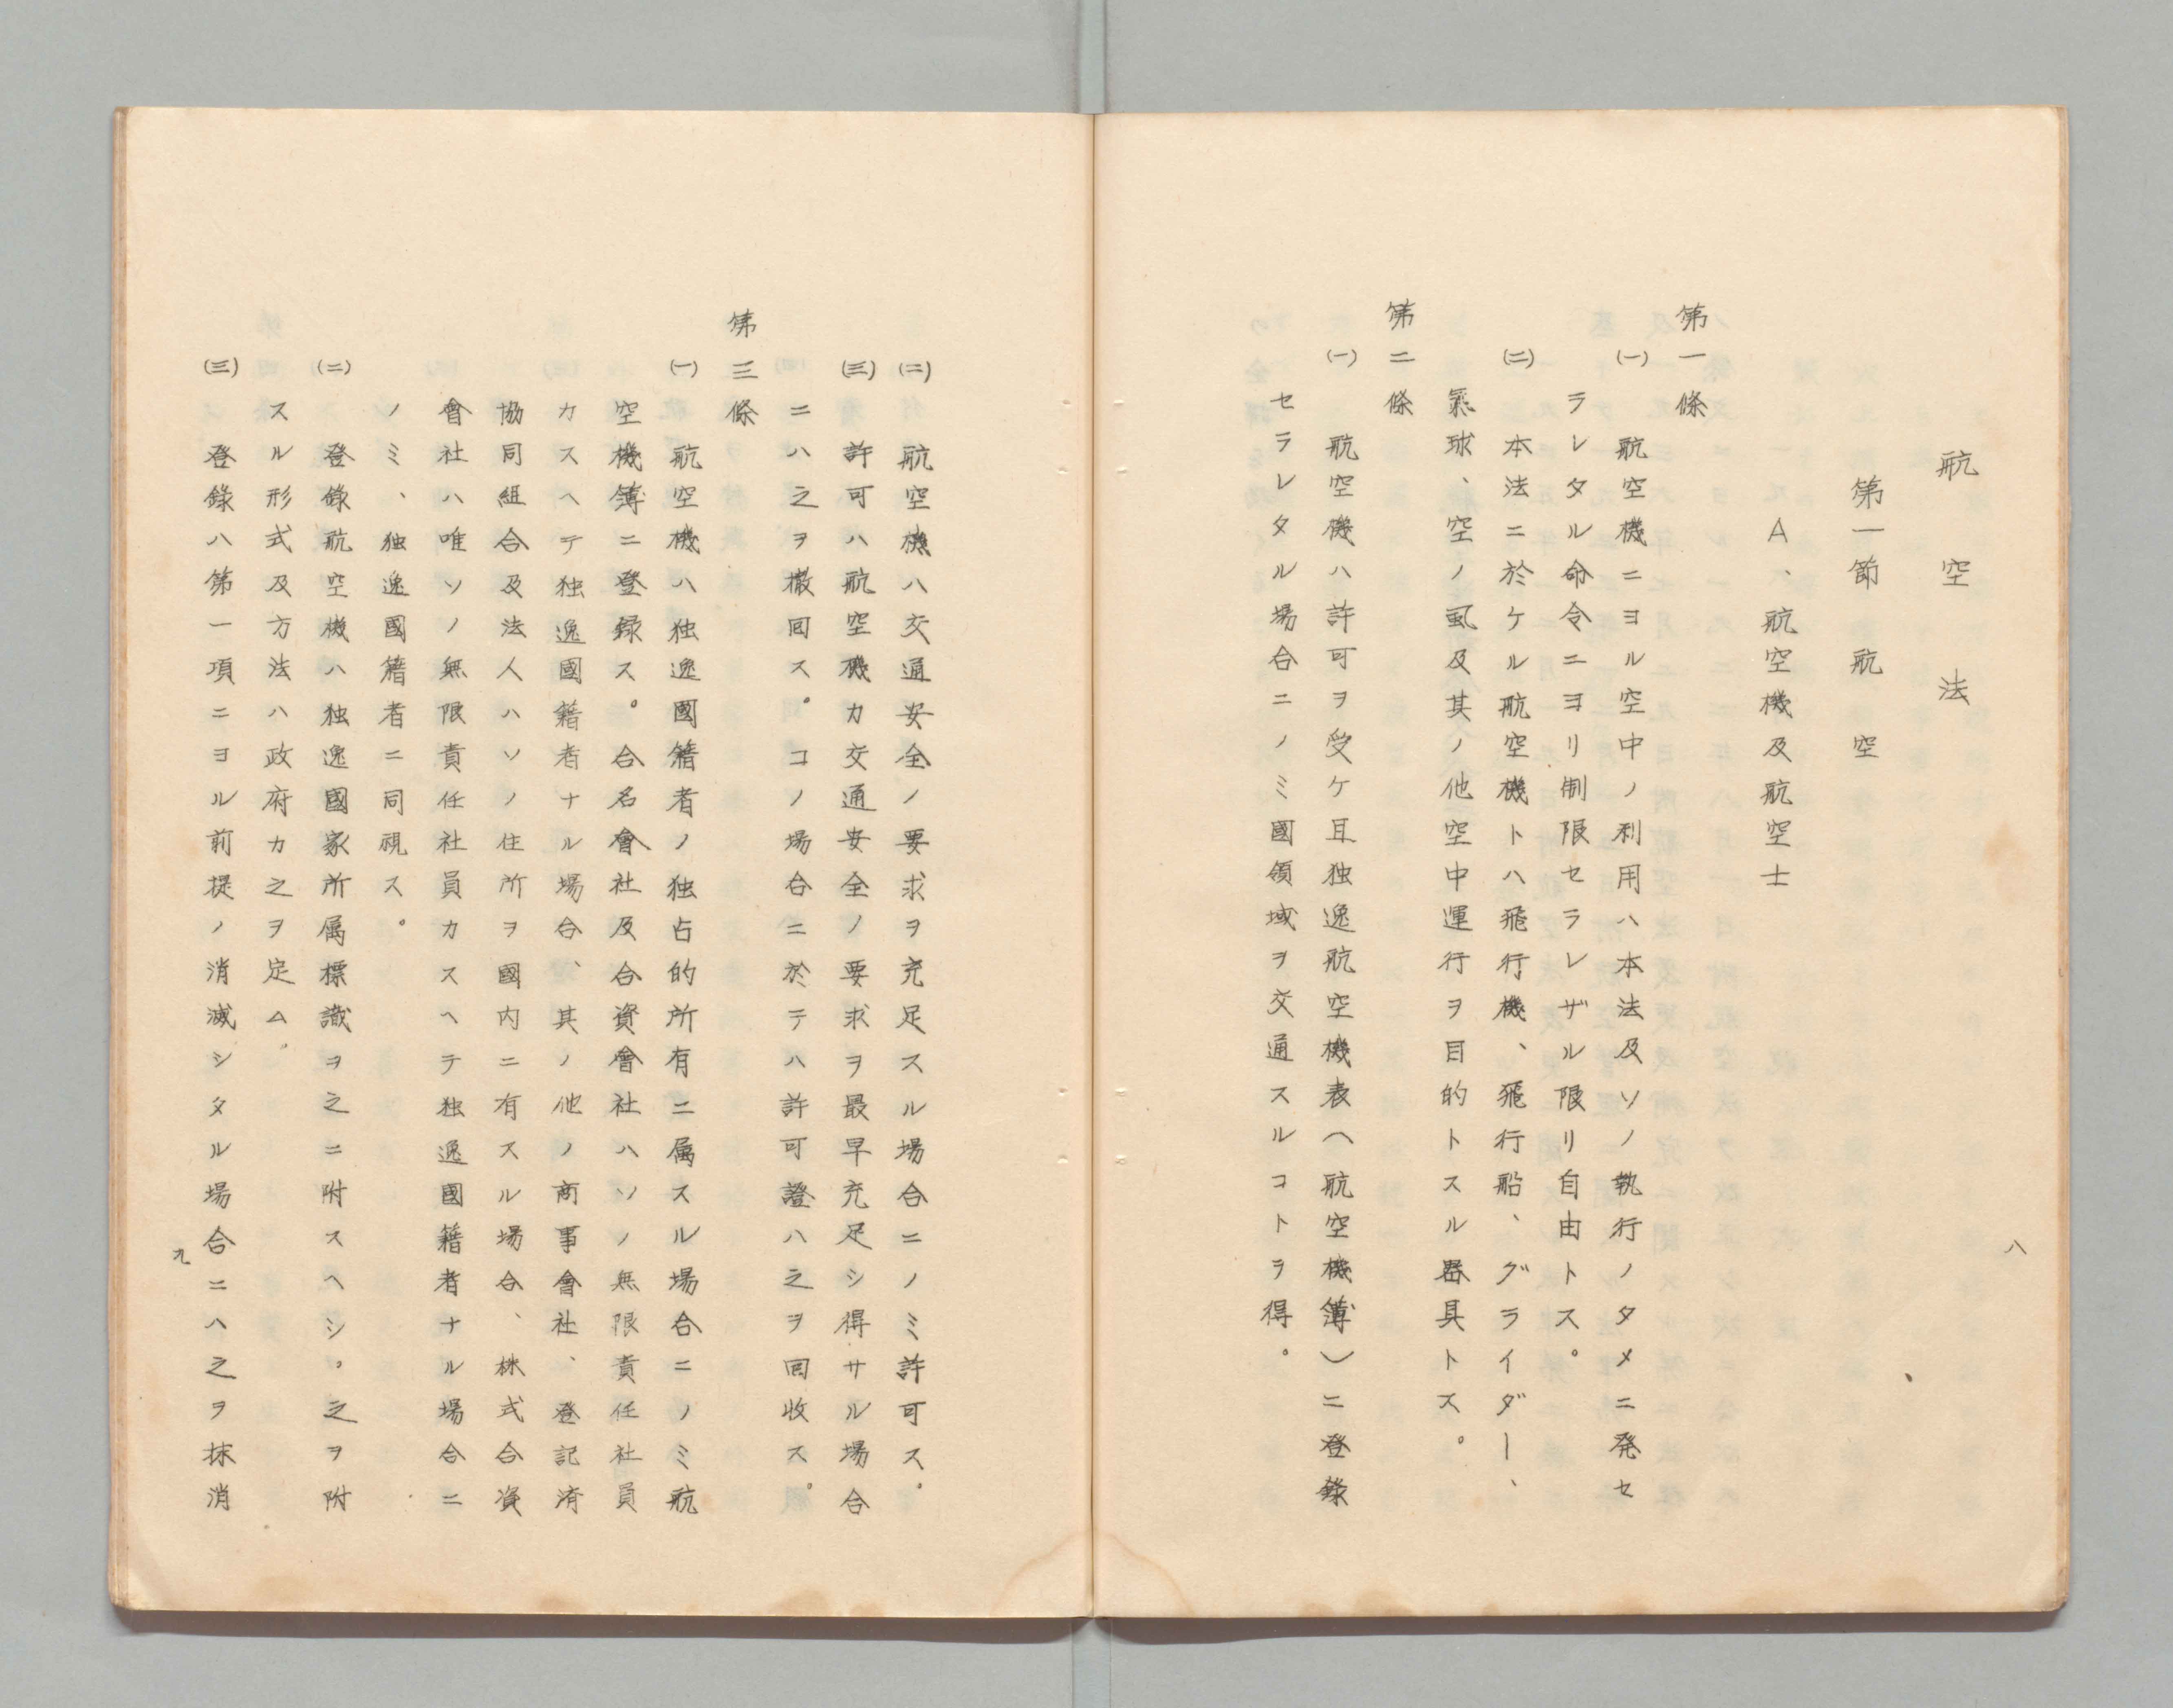 航空法
第一節 航空
A、航空機及航空士
第一條
(一) 航空機ニヨル空中ノ利用ハ本法及ソノ執行ノタメニ発セ
ラレタル命令ニヨリ制限セラレザル限リ自由トス。
(二) 本法ニ於ケル航空機トハ飛行機、飛行船、グライダー、
氣球、空ノ凧及其ノ他空中運行ヲ目的トスル器具トス。
第二條
(一) 航空機ハ許可ヲ受ケ且独逸航空機表(航空機簿)ニ登錄
セラレタル場合ニノミ國領域ヲ交通スルコトヲ得。
八
(二) 航空機ハ交通安全ノ要求ヲ充足スル場合ニノミ許可ス。
(三) 許可ハ航空機カ交通安全ノ要求ヲ最早充足シ得サル場合
ニハ之ヲ撤回ス。コノ場合ニ於テハ許可證ハ之ヲ回收ス。
第三條
(一) 航空機ハ独逸國籍者ノ独占的所有ニ属スル場合ニノミ航
空機簿ニ登録ス。合名會社及合資會社ハソノ無限責任社員
カスヘテ独逸國籍者ナル場合、其ノ他ノ商事會社、登記済
協同組合及法人ハソノ住所ヲ國内ニ有スル場合、株式合資
會社ハ唯ソノ無限責任社員カスヘテ独逸國籍者ナル場合ニ
ノミ、独逸國籍者ニ同視ス。
(二) 登錄航空機ハ独逸國家所属標識ヲ之ニ附スヘシ。之ヲ附
スル形式及方法ハ政府カ之ヲ定ム。
(三) 登錄ハ第一項ニヨル前提ノ消滅シタル場合ニハ之ヲ抹消
九